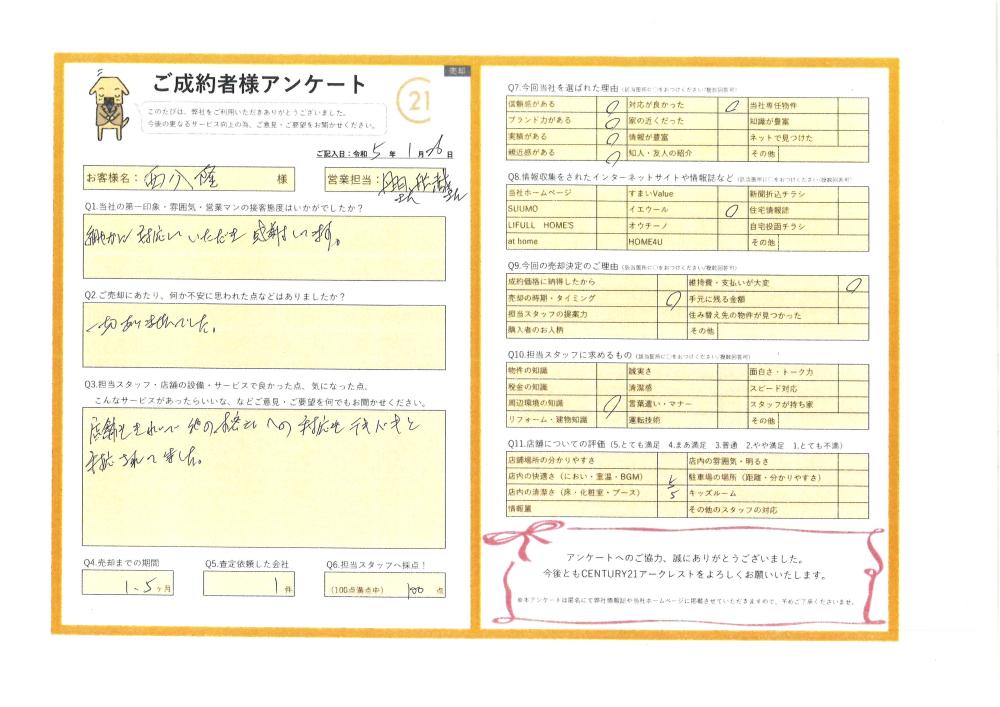 売却
ご成約者様アンケート
21
このたびは、弊社をご利用いただきありがとうございました。
今後の更なるサービス向上の為、ご意見・ご要望をお聞かせください。
ご記入日：令和 5 年 1 月 26 日
お客様名： 様
営業担当：
Q1.当社の第一印象・雰囲気・営業マンの接客態度はいかがでしたか？
細やかに対応していただき感謝しています。
Q2.ご売却にあたり、何か不安に思われた点などはありましたか？
一切ありませんでした。
Q3.担当スタッフ・店舗の設備・サービスで良かった点、気になった点、
こんなサービスがあったらいいな、などご意見・ご要望を何でもお聞かせください。
店舗もきれいで他のお客さんへの対応もテキパキと
対応されてました。
Q4.売却までの期間
1.5ヶ月
Q5.査定依頼した会社
1 件
Q6.担当スタッフへ採点！
(100点満点中) 100 点
Q7.今回当社を選ばれた理由（該当箇所に○をおつけください/複数回答可）
信頼感がある 対応が良かった 当社専任物件
ブランド力がある 家の近くだった 知識が豊富
実績がある 情報が豊富 ネットで見つけた
親近感がある 知人・友人の紹介 その他
Q8.情報収集をされたインターネットサイトや情報誌など（該当箇所に○をおつけください/複数回答可）
当社ホームページ すまいValue 新聞折込チラシ
SUUMO イエウール 住宅情報誌
LIFULL HOME'S オウチーノ 自宅投函チラシ
at home HOME4U その他
Q9.今回の売却決定のご理由（該当箇所に○をおつけください/複数回答可）
成約価格に納得したから 維持費・支払いが大変
売却の時期・タイミング 手元に残る金額
担当スタッフの提案力 住み替え先の物件が見つかった
購入者のお人柄 その他
Q10.担当スタッフに求めるもの（該当箇所に○をおつけください/複数回答可）
物件の知識 誠実さ 面白さ・トーク力
税金の知識 清潔感 スピード対応
周辺環境の知識 言葉遣い・マナー スタッフが持ち家
リフォーム・建物知識 運転技術 その他
Q11.店舗についての評価（5.とても満足 4.まあ満足 3.普通 2.やや満足 1.とても不満）
店舗場所の分かりやすさ 店内の雰囲気・明るさ
店内の快適さ（におい・室温・BGM） 5 駐車場の場所（距離・分かりやすさ）
店内の清潔さ（床・化粧室・ブース） 5 キッズルーム
情報量 その他のスタッフの対応
アンケートへのご協力、誠にありがとうございました。
今後ともCENTURY21アークレストをよろしくお願いいたします。
※本アンケートは匿名にて弊社情報誌や当社ホームページに掲載させていただきますので、予めご了承くださいませ。